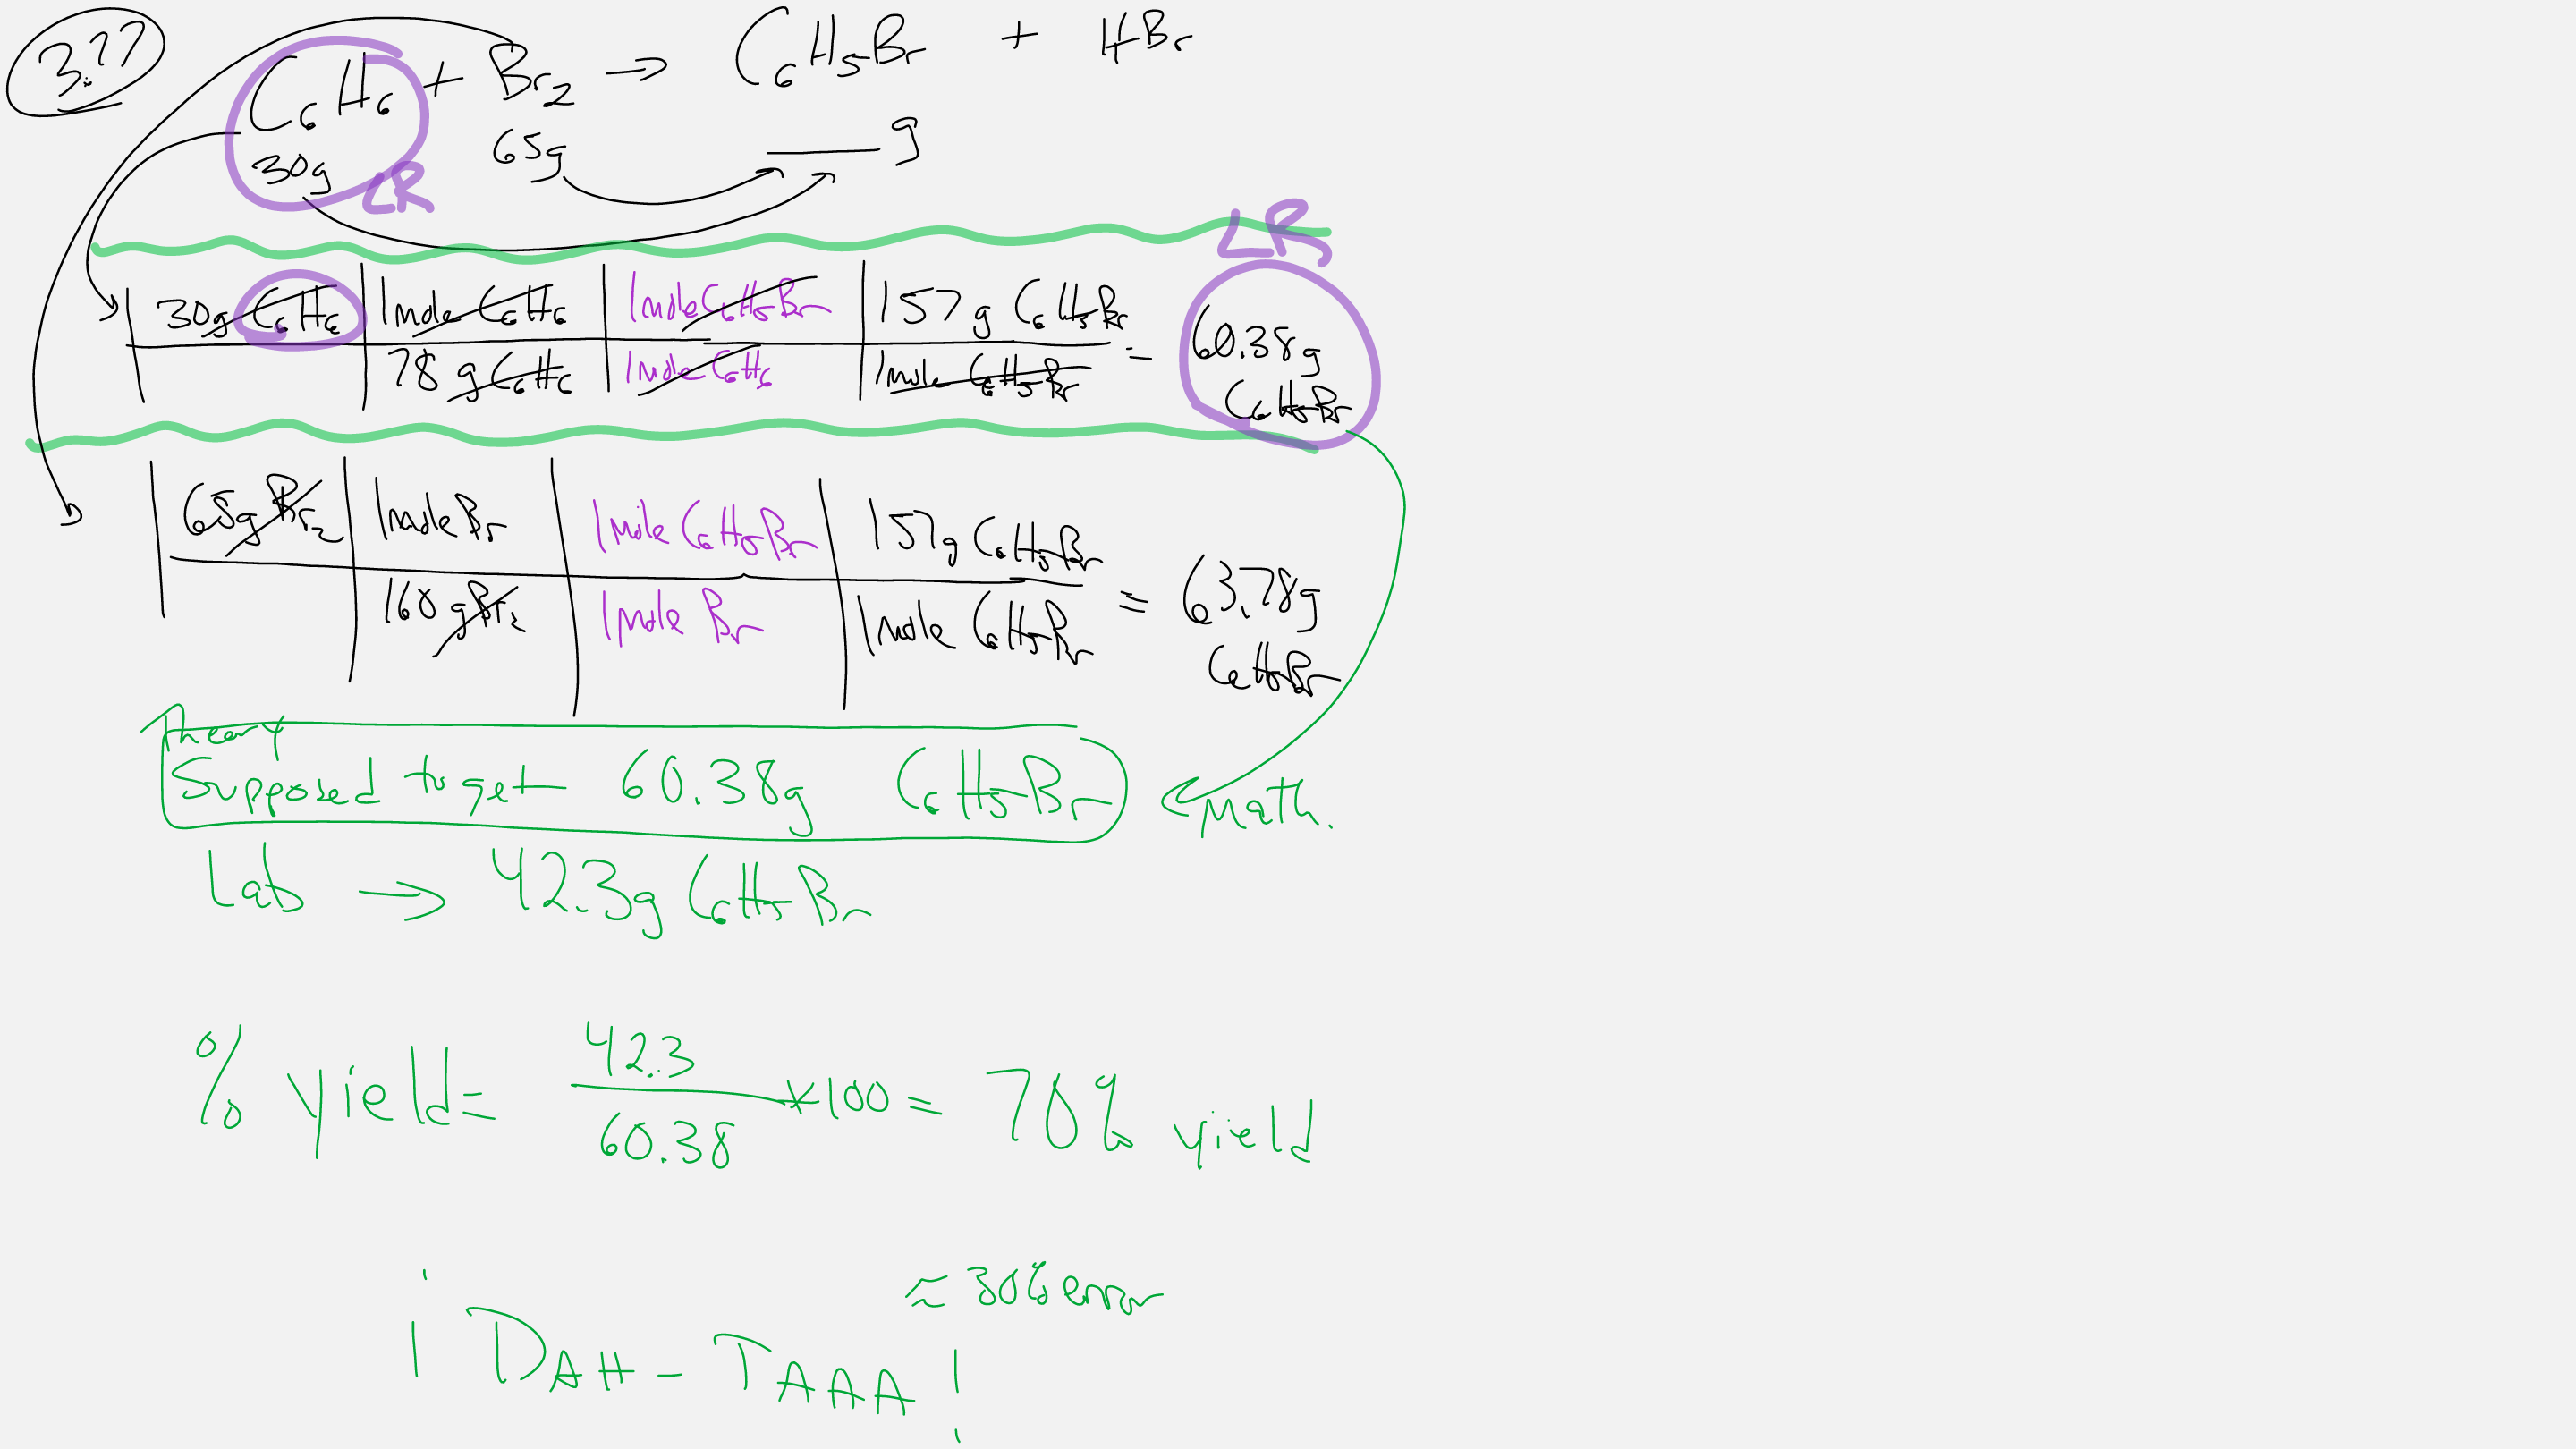 3.77
C6H6 + Br2 → C6H5Br + HBr
30g 65g ____ g
LR
LR
30g C6H6 | 1mole C6H6 | 1mole C6H5Br | 157g C6H5Br = 60.38g
78 g C6H6 | 1mole C6H6 | 1mole C6H5Br C6H5Br
65g Br2 | 1mole Br | 1mole C6H5Br | 157g C6H5Br = 63.78g
160 gBr2 | 1mole Br | 1mole C6H5Br C6H5Br
Theory
Supposed to get 60.38g C6H5Br ← math.
Lab → 42.3g C6H5Br
42.3
% yield = ——— *100 = 70% yield
60.38
≈ 30% error
¡ DAH - TAAA !